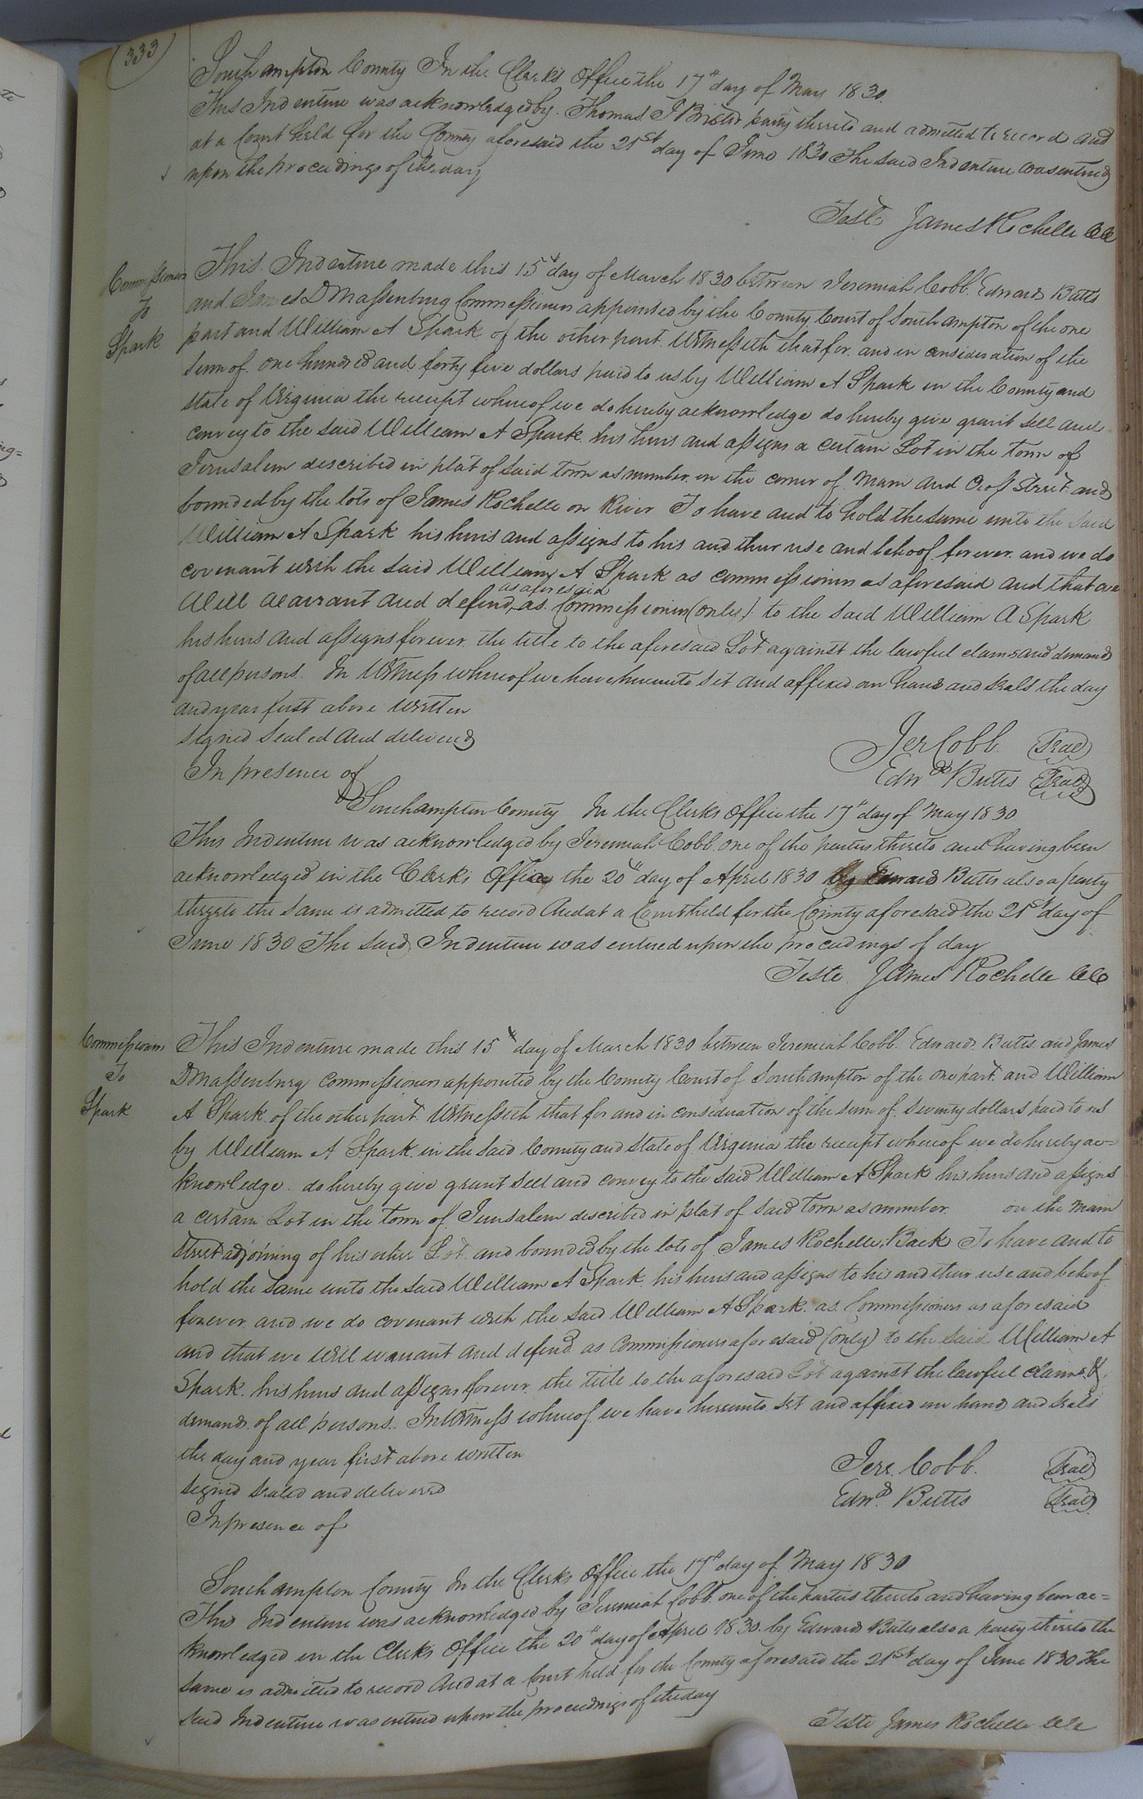 333
Southampton County In the Clerks Office the 17th day of May 1830
This Indenture was acknowledged by Thomas J Bristor party thereto and admitted to record and
at a Court held for the County aforesaid the 21st day of June 1830 The said Indenture was entered
upon the proceedings of the day
Teste James Rochelle CC
Commissioners
To
Spark
This Indenture made this 15th day of March 1830 between Jeremiah Cobb, Edward Butts
and James D Massenburg Commissioners appointed by the County Court of Southampton of the one
part and William A Spark of the other part Witnesseth that for and in consideration of the
sum of one hundred and forty five dollars paid to us by William A Spark in the County and
state of Virginia the receipt whereof we do hereby acknowledge do hereby give grant sell and
convey to the said William A Spark his heirs and assigns a certain Lot in the town of
Jerusalem described in plat of said town as number on the corner of Main and Cross Street and
bounded by the lots of James Rochelle on River To have and to hold the same unto the said
William A Spark his heirs and assigns to his and their use and behoof forever and we do
covenant with the said William A Spark as commissioners as aforesaid and that we
Will warrant and defend as aforesaid as Commissioners (only) to the said William A Spark
his heirs and assigns forever the title to the aforesaid Lot against the lawful claims and demands
of all persons. In Witness whereof we have hereunto set and affixed our hand and seals the day
and year first above written
signed sealed and delivered
In presence of
Jer Cobb (Seal)
Edwd Butts (Seal)
Southampton County In the Clerks Office the 17th day of May 1830
This Indenture was acknowledged by Jeremiah Cobb one of the parties thereto and having been
acknowledged in the Clerk's Office the 20th day of April 1830 by Edward Butts also a party
thereto the same is admitted to record And at a Court held for the County aforesaid the 21st day of
June 1830 The said Indenture was entered upon the proceedings of day
Teste James Rochelle CC
Commissioners
To
Spark
This Indenture made this 15th day of March 1830 between Jeremiah Cobb, Edward Butts and James
D Massenburg Commissioners appointed by the County Court of Southampton of the one part and William
A Spark of the other part Witnesseth that for and in consideration of the sum of Seventy dollars paid to us
by William A Spark in the said County and State of Virginia the receipt whereof we do hereby ac=
knowledge do hereby give grant sell and convey to the said William A Spark his heirs and assigns
a certain Lot in the town of Jerusalem described in plat of said town as number on the main
street adjoining of his other Lot and bounded by the lots of James Rochelle Back To have and to
hold the same unto the said William A Spark his heirs and assigns to his and their use and behoof
forever and we do covenant with the said William A Spark as Commissioners as aforesaid
and that we will warrant and defend as Commissioners aforesaid (only) to the said William A
Spark his heirs and assigns forever the title to the aforesaid Lot against the lawful claims &
demands of all persons. In Witness whereof we have hereunto set and affixed our hand and seals
the day and year first above written
signed sealed and delivered
In presence of
Jere Cobb. (Seal)
Edwd Butts (Seal)
Southampton County In the Clerks Office the 17th day of May 1830
This Indenture was acknowledged by Jeremiah Cobb one of the parties thereto and having been ac=
knowledged in the Clerks Office the 20th day of April 1830 by Edward Butts also a party thereto the
same is admitted to record And at a Court held for the County aforesaid the 21st day of June 1830 The
said Indenture was entered upon the proceedings of the day
Teste James Rochelle CC